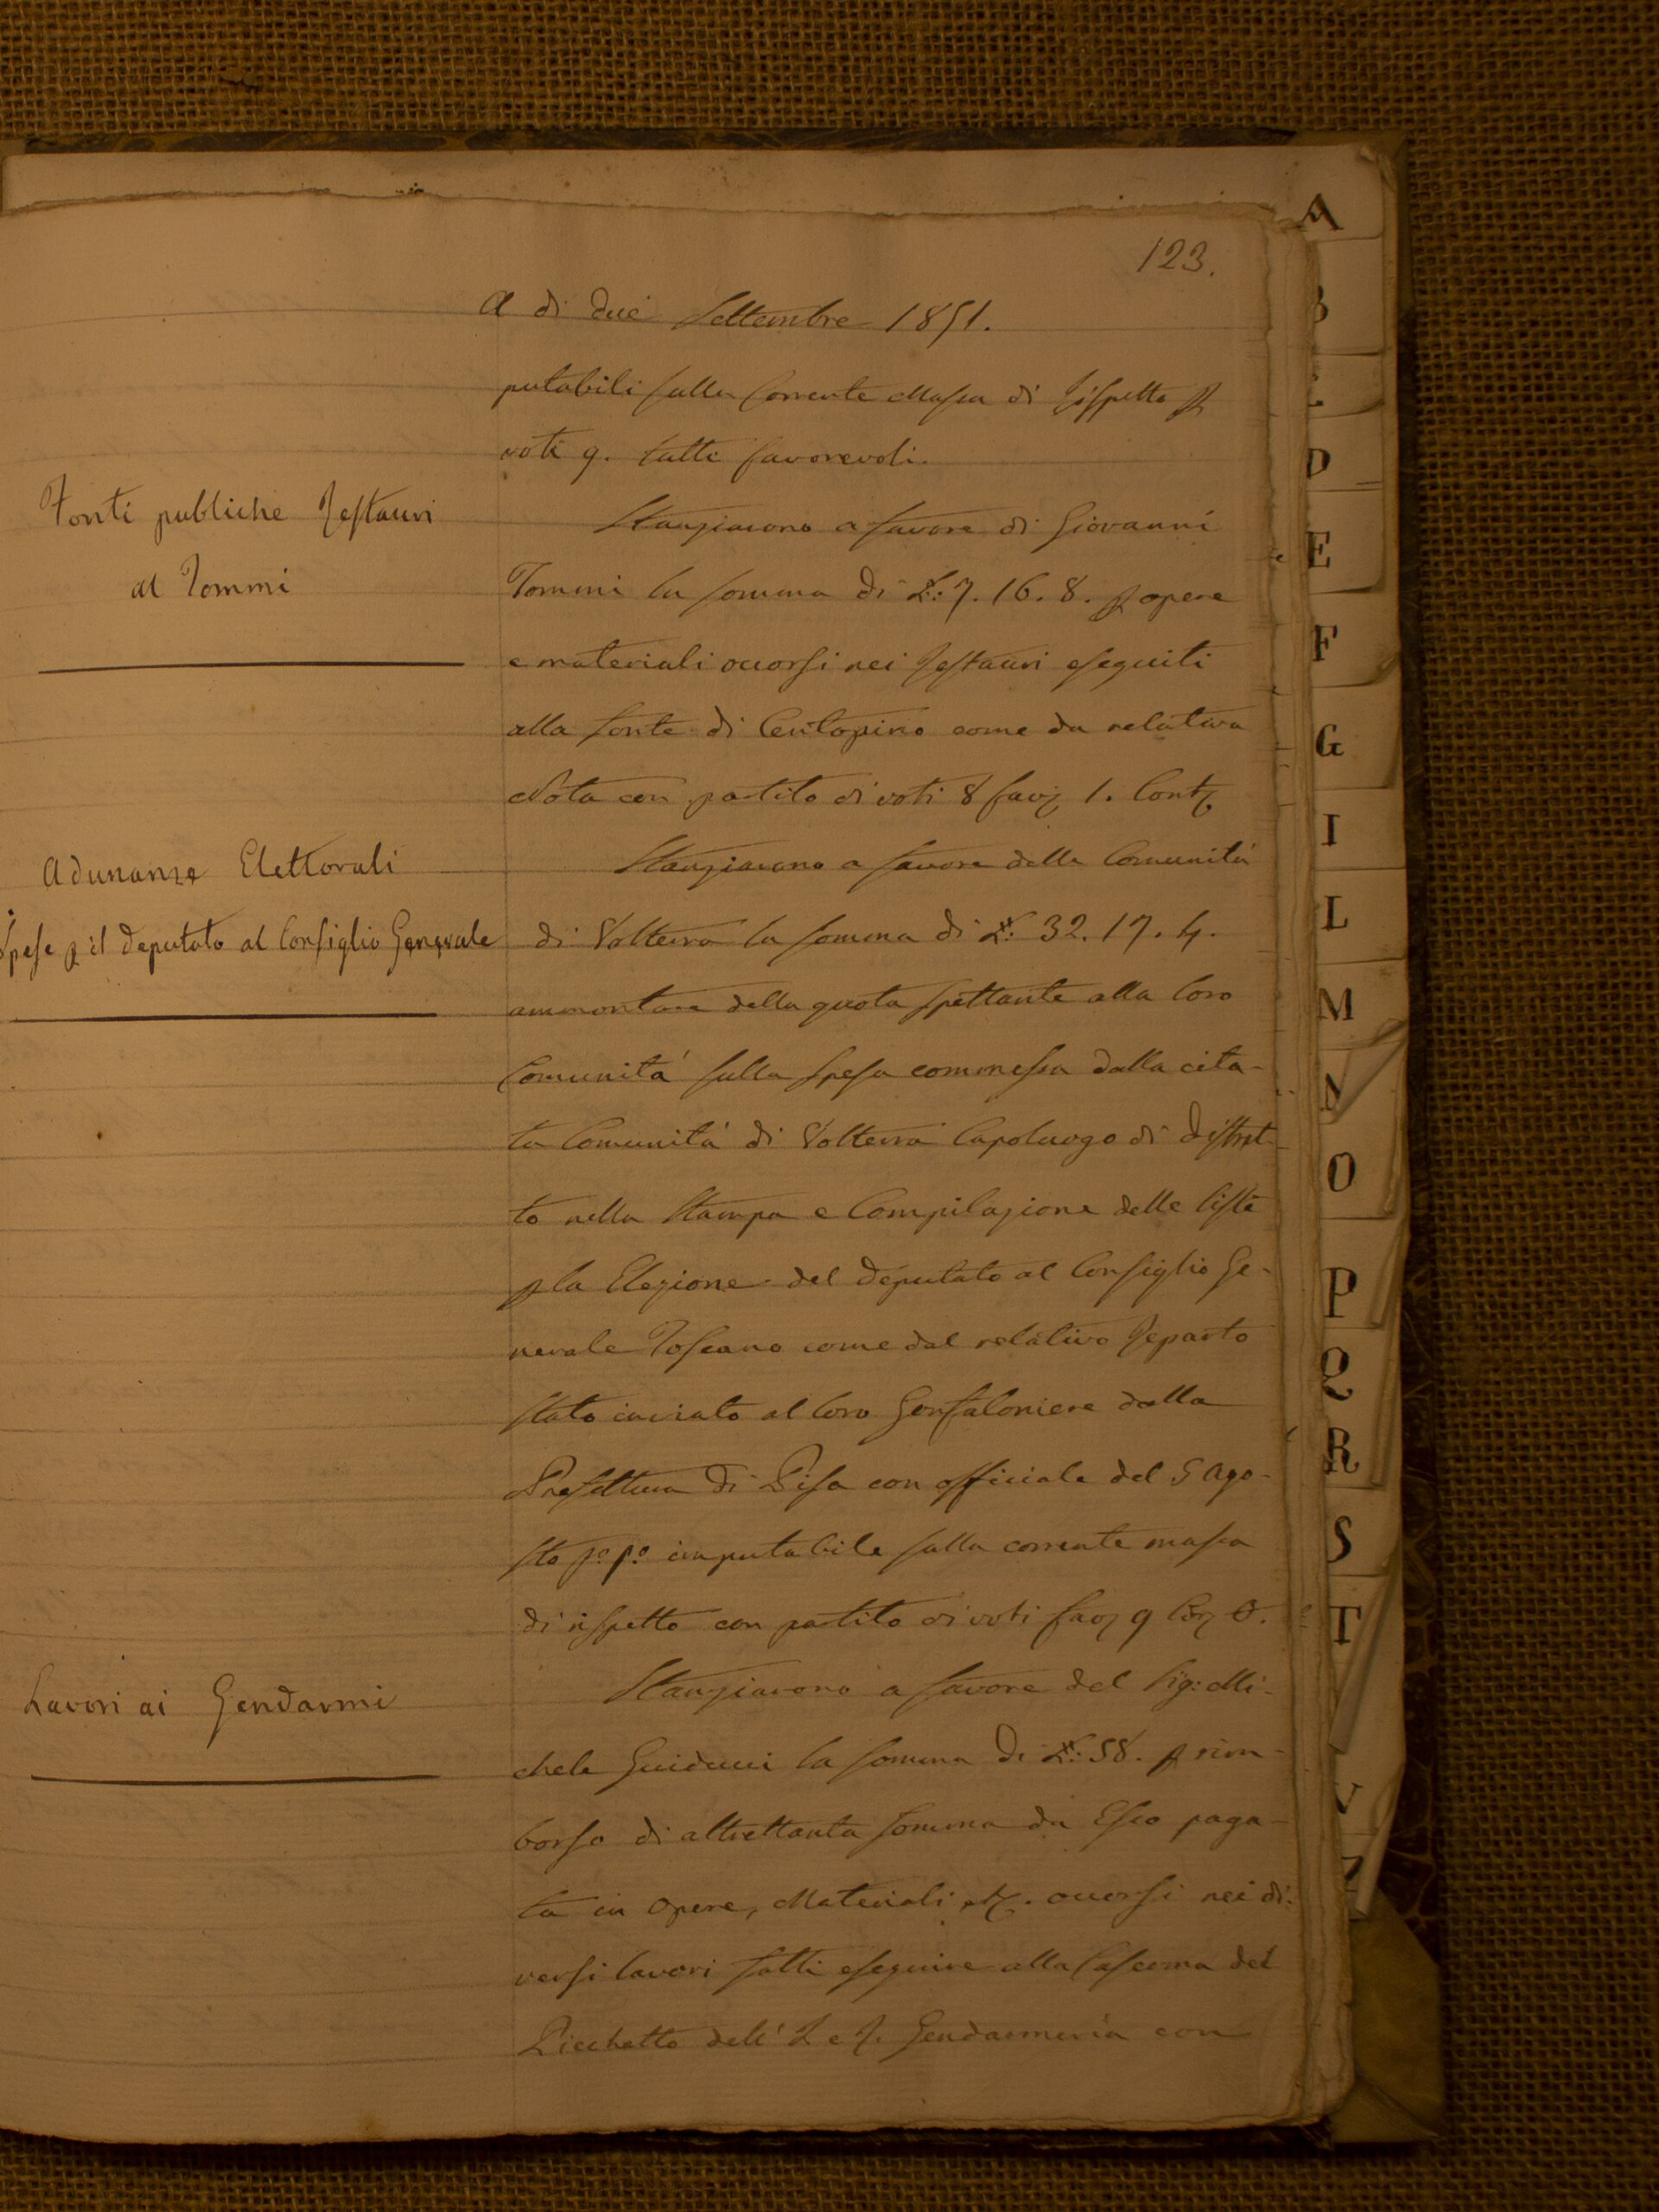 123.
A di due Settembre 1851.
putabili sulla Corrente Massa di Rispetto p
voti 9. tutti favorevoli.
Fonti publiche Restauri
al Tommi
Stanziarono a favore di Giovanni
Tommi la somma di £: 7. 16. 8. p opere
e materiali occorsi nei Restauri eseguiti
alla fonte di Centopino come da relativa
Nota con partito di voti 8 fav; 1. Cont;
Adunanze Elettorali
Spese p il deputato al Consiglio Generale
Stanziarono a favore della Comunitá
di Volterra la somma di £: 32. 17. 4.
ammontare della quota spettante alla loro
Comunitá sulla spesa commessa dalla cita-
ta Comunitá di Volterra Capoluogo di distret-
to nella Stampa e Compilazione delle liste
p la Elezione del deputato al Consiglio Ge-
nerale Toscano come dal relativo Reparto
stato inviato al loro Gonfaloniere dalla
Prefettura di Pisa con officiale del 5 Ago-
sto p.º p.º imputabile sulla corrente massa
di rispetto con partito di voti fav; 9 Con; 0.
Lavori ai Gendarmi
Stanziarono a favore del Sig: Mi-
chele Guiducci la somma di £: 58. p rim-
borso di altrettanta somma da Esso paga-
ta in Opere, Materiali, etc. occorsi nei di-
versi lavori fatti eseguire alla Caserma del
Picchetto dell' I. e R. Gendarmeria con
A
B
C
D
E
F
G
I
L
M
N
O
P
Q
R
S
T
V
Z